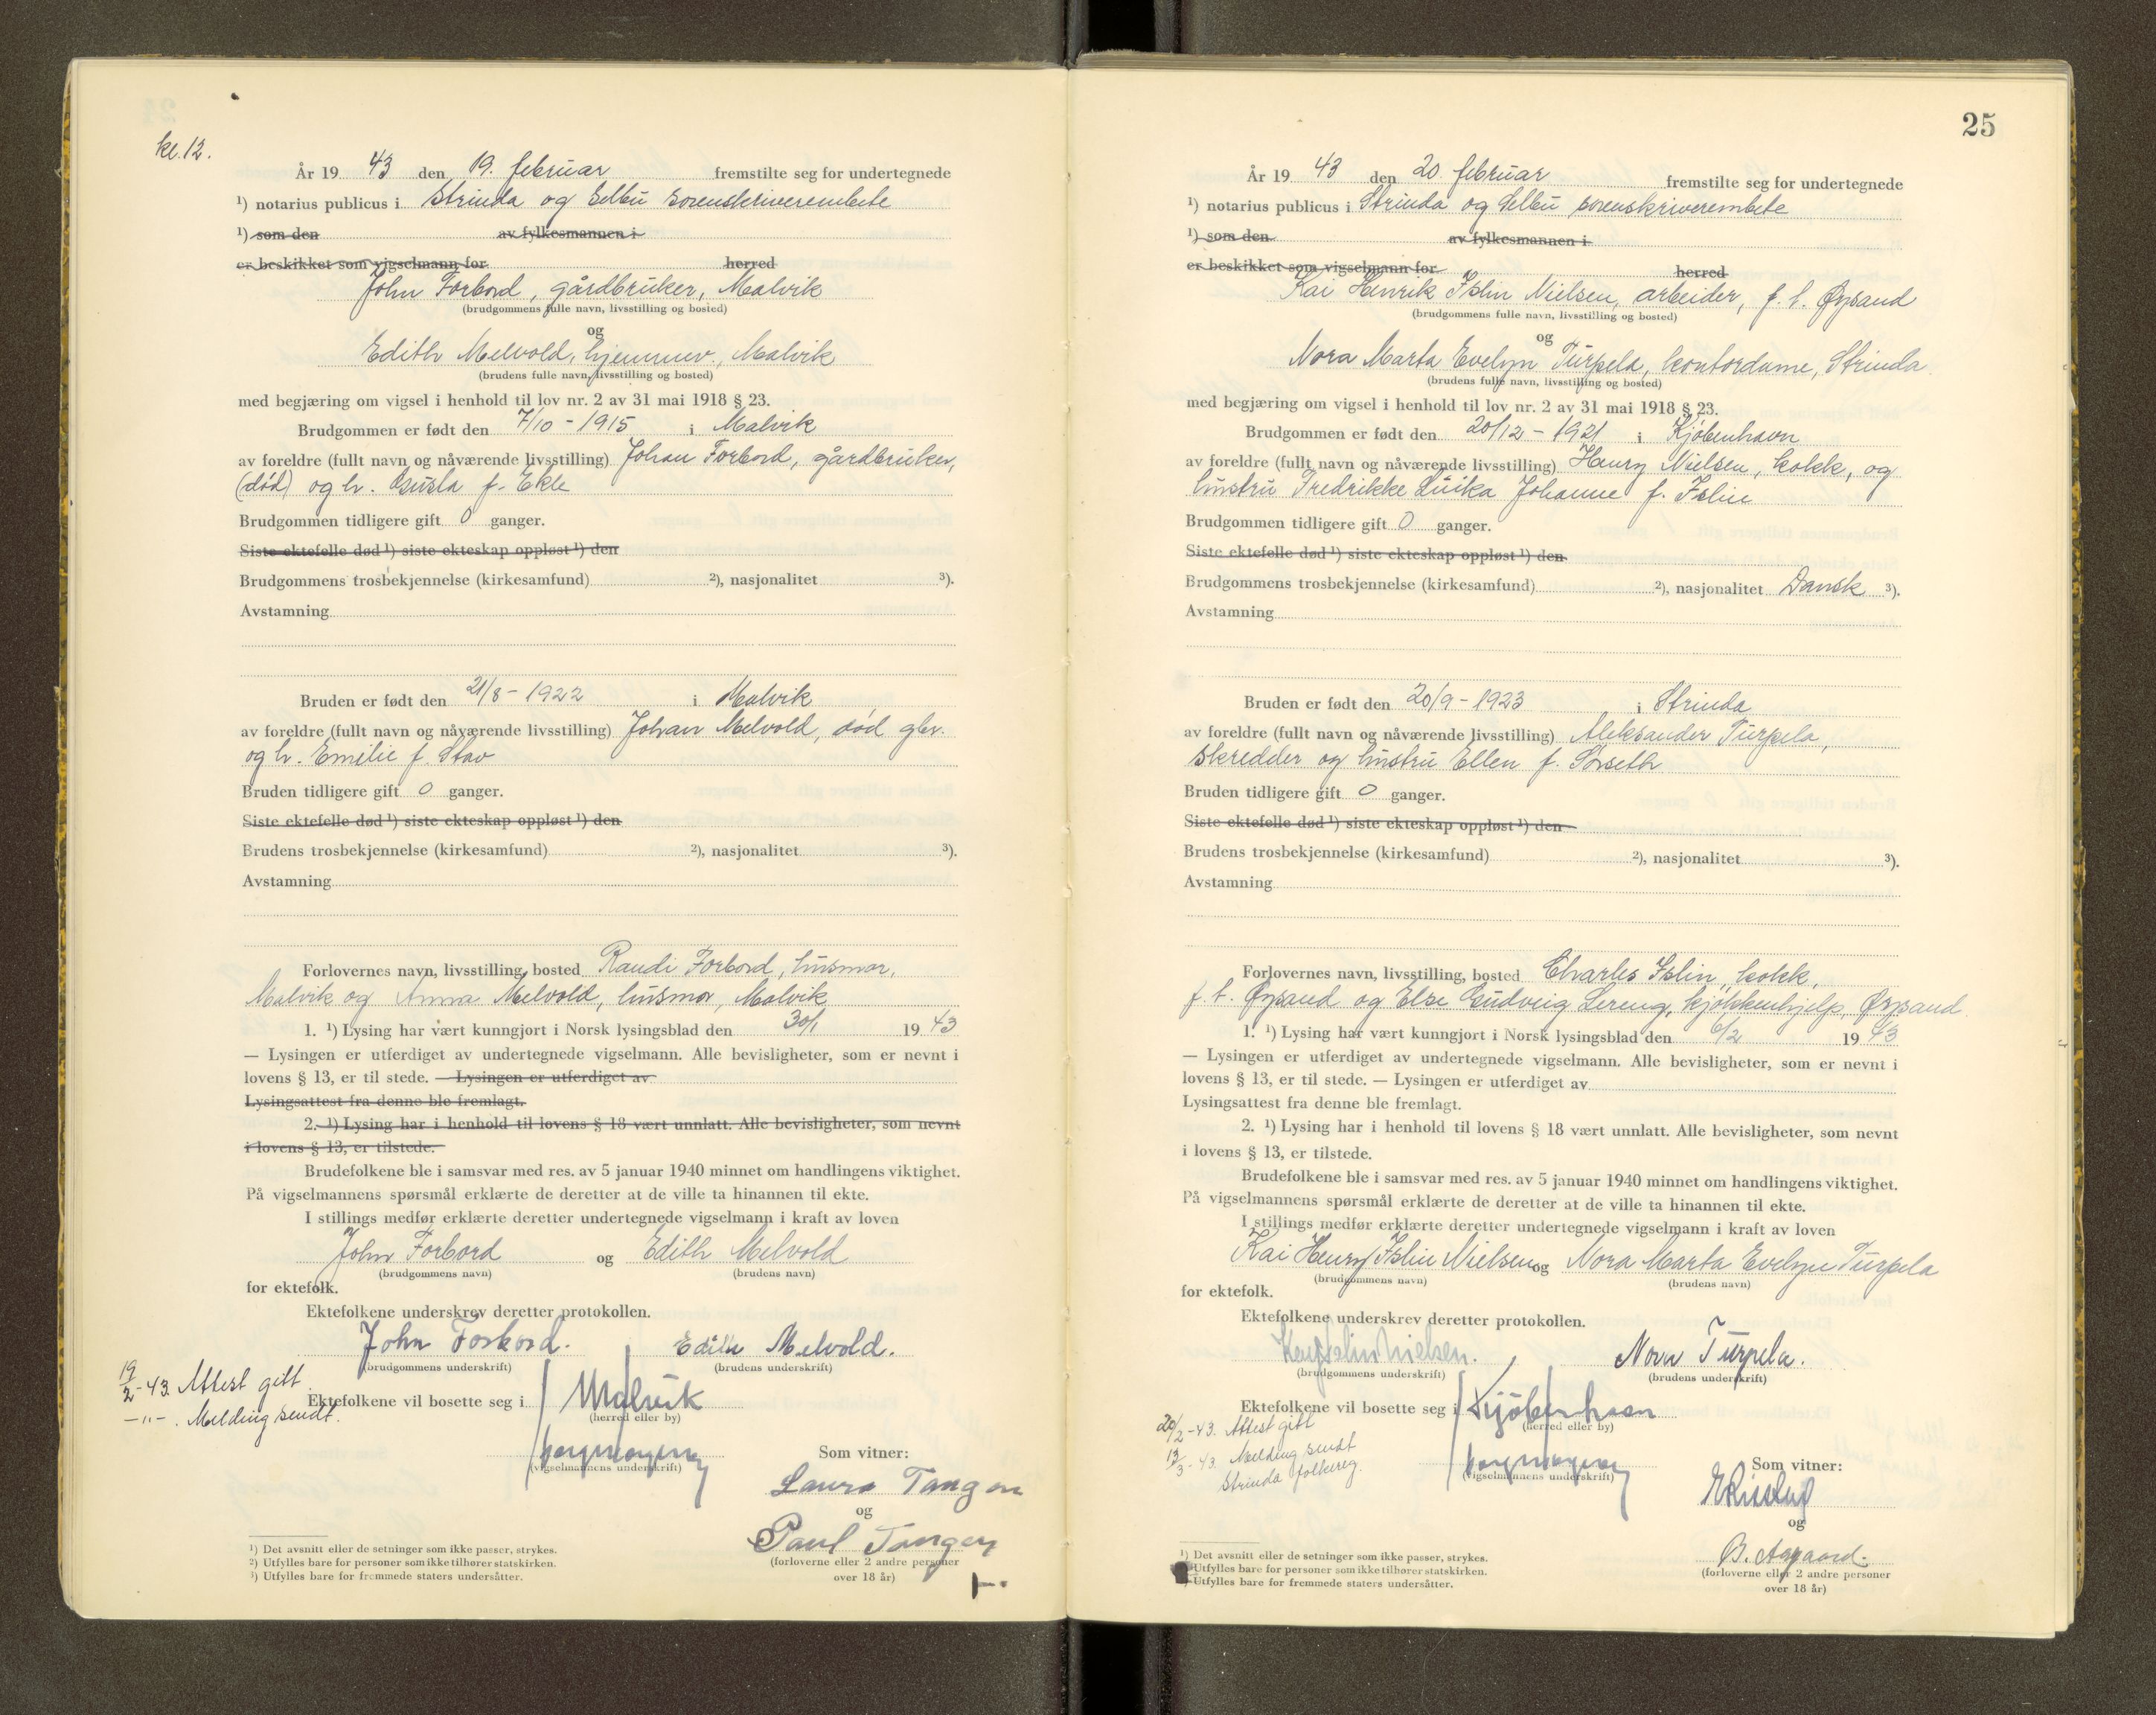 kl. 12.
År 19 43 den 19. februar fremstilte seg for undertegnede
¹) notarius publicus i Strinda og Selbu sorenskriverembete
¹) som den av fylkesmannen i
er beskikket som vigselmann for herred
John Forbord, gårdbruker, Malvik
(brudgommens fulle navn, livsstilling og bosted)
og
Edith Melvold, hjemmev., Malvik
(brudens fulle navn, livsstilling og bosted)
med begjæring om vigsel i henhold til lov nr. 2 av 31 mai 1918 § 23.
Brudgommen er født den 7/10 - 1915 i Malvik
av foreldre (fullt navn og nåværende livsstilling) Johan Forbord, gårdbruker,
(död) og h. Gusta f. Ekle
Brudgommen tidligere gift 0 ganger.
Siste ektefelle død ¹) siste ekteskap oppløst ¹) den
Brudgommens trosbekjennelse (kirkesamfund) ²), nasjonalitet ³).
Avstamning
Bruden er født den 21/8 - 1922 i Malvik
av foreldre (fullt navn og nåværende livsstilling) Johan Melvold, död gbr.
og h. Emilie f. Stav
Bruden tidligere gift 0 ganger.
Siste ektefelle død ¹) siste ekteskap oppløst ¹) den
Brudens trosbekjennelse (kirkesamfund) ²), nasjonalitet ³).
Avstamning
Forlovernes navn, livsstilling, bosted Randi Forbord, husmor,
Malvik og Anna Melvold, husmor, Malvik
1. ¹) Lysing har vært kunngjort i Norsk lysingsblad den 30/1 19 43
— Lysingen er utferdiget av undertegnede vigselmann. Alle bevisligheter, som er nevnt i
lovens § 13, er til stede. — Lysingen er utferdiget av
Lysingsattest fra denne ble fremlagt.
2. ¹) Lysing har i henhold til lovens § 18 vært unnlatt. Alle bevisligheter, som nevnt
i lovens § 13, er tilstede.
Brudefolkene ble i samsvar med res. av 5 januar 1940 minnet om handlingens viktighet.
På vigselmannens spørsmål erklærte de deretter at de ville ta hinannen til ekte.
I stillings medfør erklærte deretter undertegnede vigselmann i kraft av loven
John Forbord og Edith Melvold
(brudgommens navn) (brudens navn)
for ektefolk.
Ektefolkene underskrev deretter protokollen.
John Forbord. Edith Melvold.
(brudgommens underskrift) (brudens underskrift)
19/2-43. Attest gitt.
Ektefolkene vil bosette seg i Malvik
—"—. Melding sendt.
(herred eller by)
(vigselmannens underskrift)
Som vitner:
Laura Tangen
og
Paul Tangen
(forloverne eller 2 andre personer
over 18 år)
¹) Det avsnitt eller de setninger som ikke passer, strykes.
²) Utfylles bare for personer som ikke tilhører statskirken.
³) Utfylles bare for fremmede staters undersåtter.
25
År 19 43 den 20. februar fremstilte seg for undertegnede
¹) notarius publicus i Strinda og Selbu sorenskriverembete
¹) som den av fylkesmannen i
er beskikket som vigselmann for herred
Kai Henrik Islin Nielsen, arbeider, f. t. Øysand
(brudgommens fulle navn, livsstilling og bosted)
og
Nora Marta Evelyn Turpela, kontordame, Strinda
(brudens fulle navn, livsstilling og bosted)
med begjæring om vigsel i henhold til lov nr. 2 av 31 mai 1918 § 23.
Brudgommen er født den 20/12 - 1921 i Kjöbenhavn
av foreldre (fullt navn og nåværende livsstilling) Henry Nielsen, kokk, og
hustru Fredrikke Johanne f. Islin
Brudgommen tidligere gift 0 ganger.
Siste ektefelle død ¹) siste ekteskap oppløst ¹) den
Brudgommens trosbekjennelse (kirkesamfund) ²), nasjonalitet Dansk ³).
Avstamning
Bruden er født den 20/9 - 1923 i Strinda
av foreldre (fullt navn og nåværende livsstilling) Aleksander Turpela,
skredder og hustru Ellen f. Sörseth
Bruden tidligere gift 0 ganger.
Siste ektefelle død ¹) siste ekteskap oppløst ¹) den
Brudens trosbekjennelse (kirkesamfund) ²), nasjonalitet ³).
Avstamning
Forlovernes navn, livsstilling, bosted Charles Islin, kokk,
f. t. Øysand og Else Gudveig Lereng, kjökkenhjelp, Øysand
1. ¹) Lysing har vært kunngjort i Norsk lysingsblad den 6/2 19 43
— Lysingen er utferdiget av undertegnede vigselmann. Alle bevisligheter, som er nevnt i
lovens § 13, er til stede. — Lysingen er utferdiget av
Lysingsattest fra denne ble fremlagt.
2. ¹) Lysing har i henhold til lovens § 18 vært unnlatt. Alle bevisligheter, som nevnt
i lovens § 13, er tilstede.
Brudefolkene ble i samsvar med res. av 5 januar 1940 minnet om handlingens viktighet.
På vigselmannens spørsmål erklærte de deretter at de ville ta hinannen til ekte.
I stillings medfør erklærte deretter undertegnede vigselmann i kraft av loven
Kai Henry Islin Nielsen og Nora Marta Evelyn Turpela
(brudgommens navn) (brudens navn)
for ektefolk.
Ektefolkene underskrev deretter protokollen.
Kay Islin Nielsen. Nora Turpela.
(brudgommens underskrift) (brudens underskrift)
Ektefolkene vil bosette seg i Kjöbenhavn
(herred eller by)
20/2-43. Attest gitt
13/3-43. Melding sendt
Strinda folkereg.
(vigselmannens underskrift)
Som vitner:
og
B. Aagaard.
(forloverne eller 2 andre personer
over 18 år)
¹) Det avsnitt eller de setninger som ikke passer, strykes.
Utfylles bare for personer som ikke tilhører statskirken.
Utfylles bare for fremmede staters undersåtter.